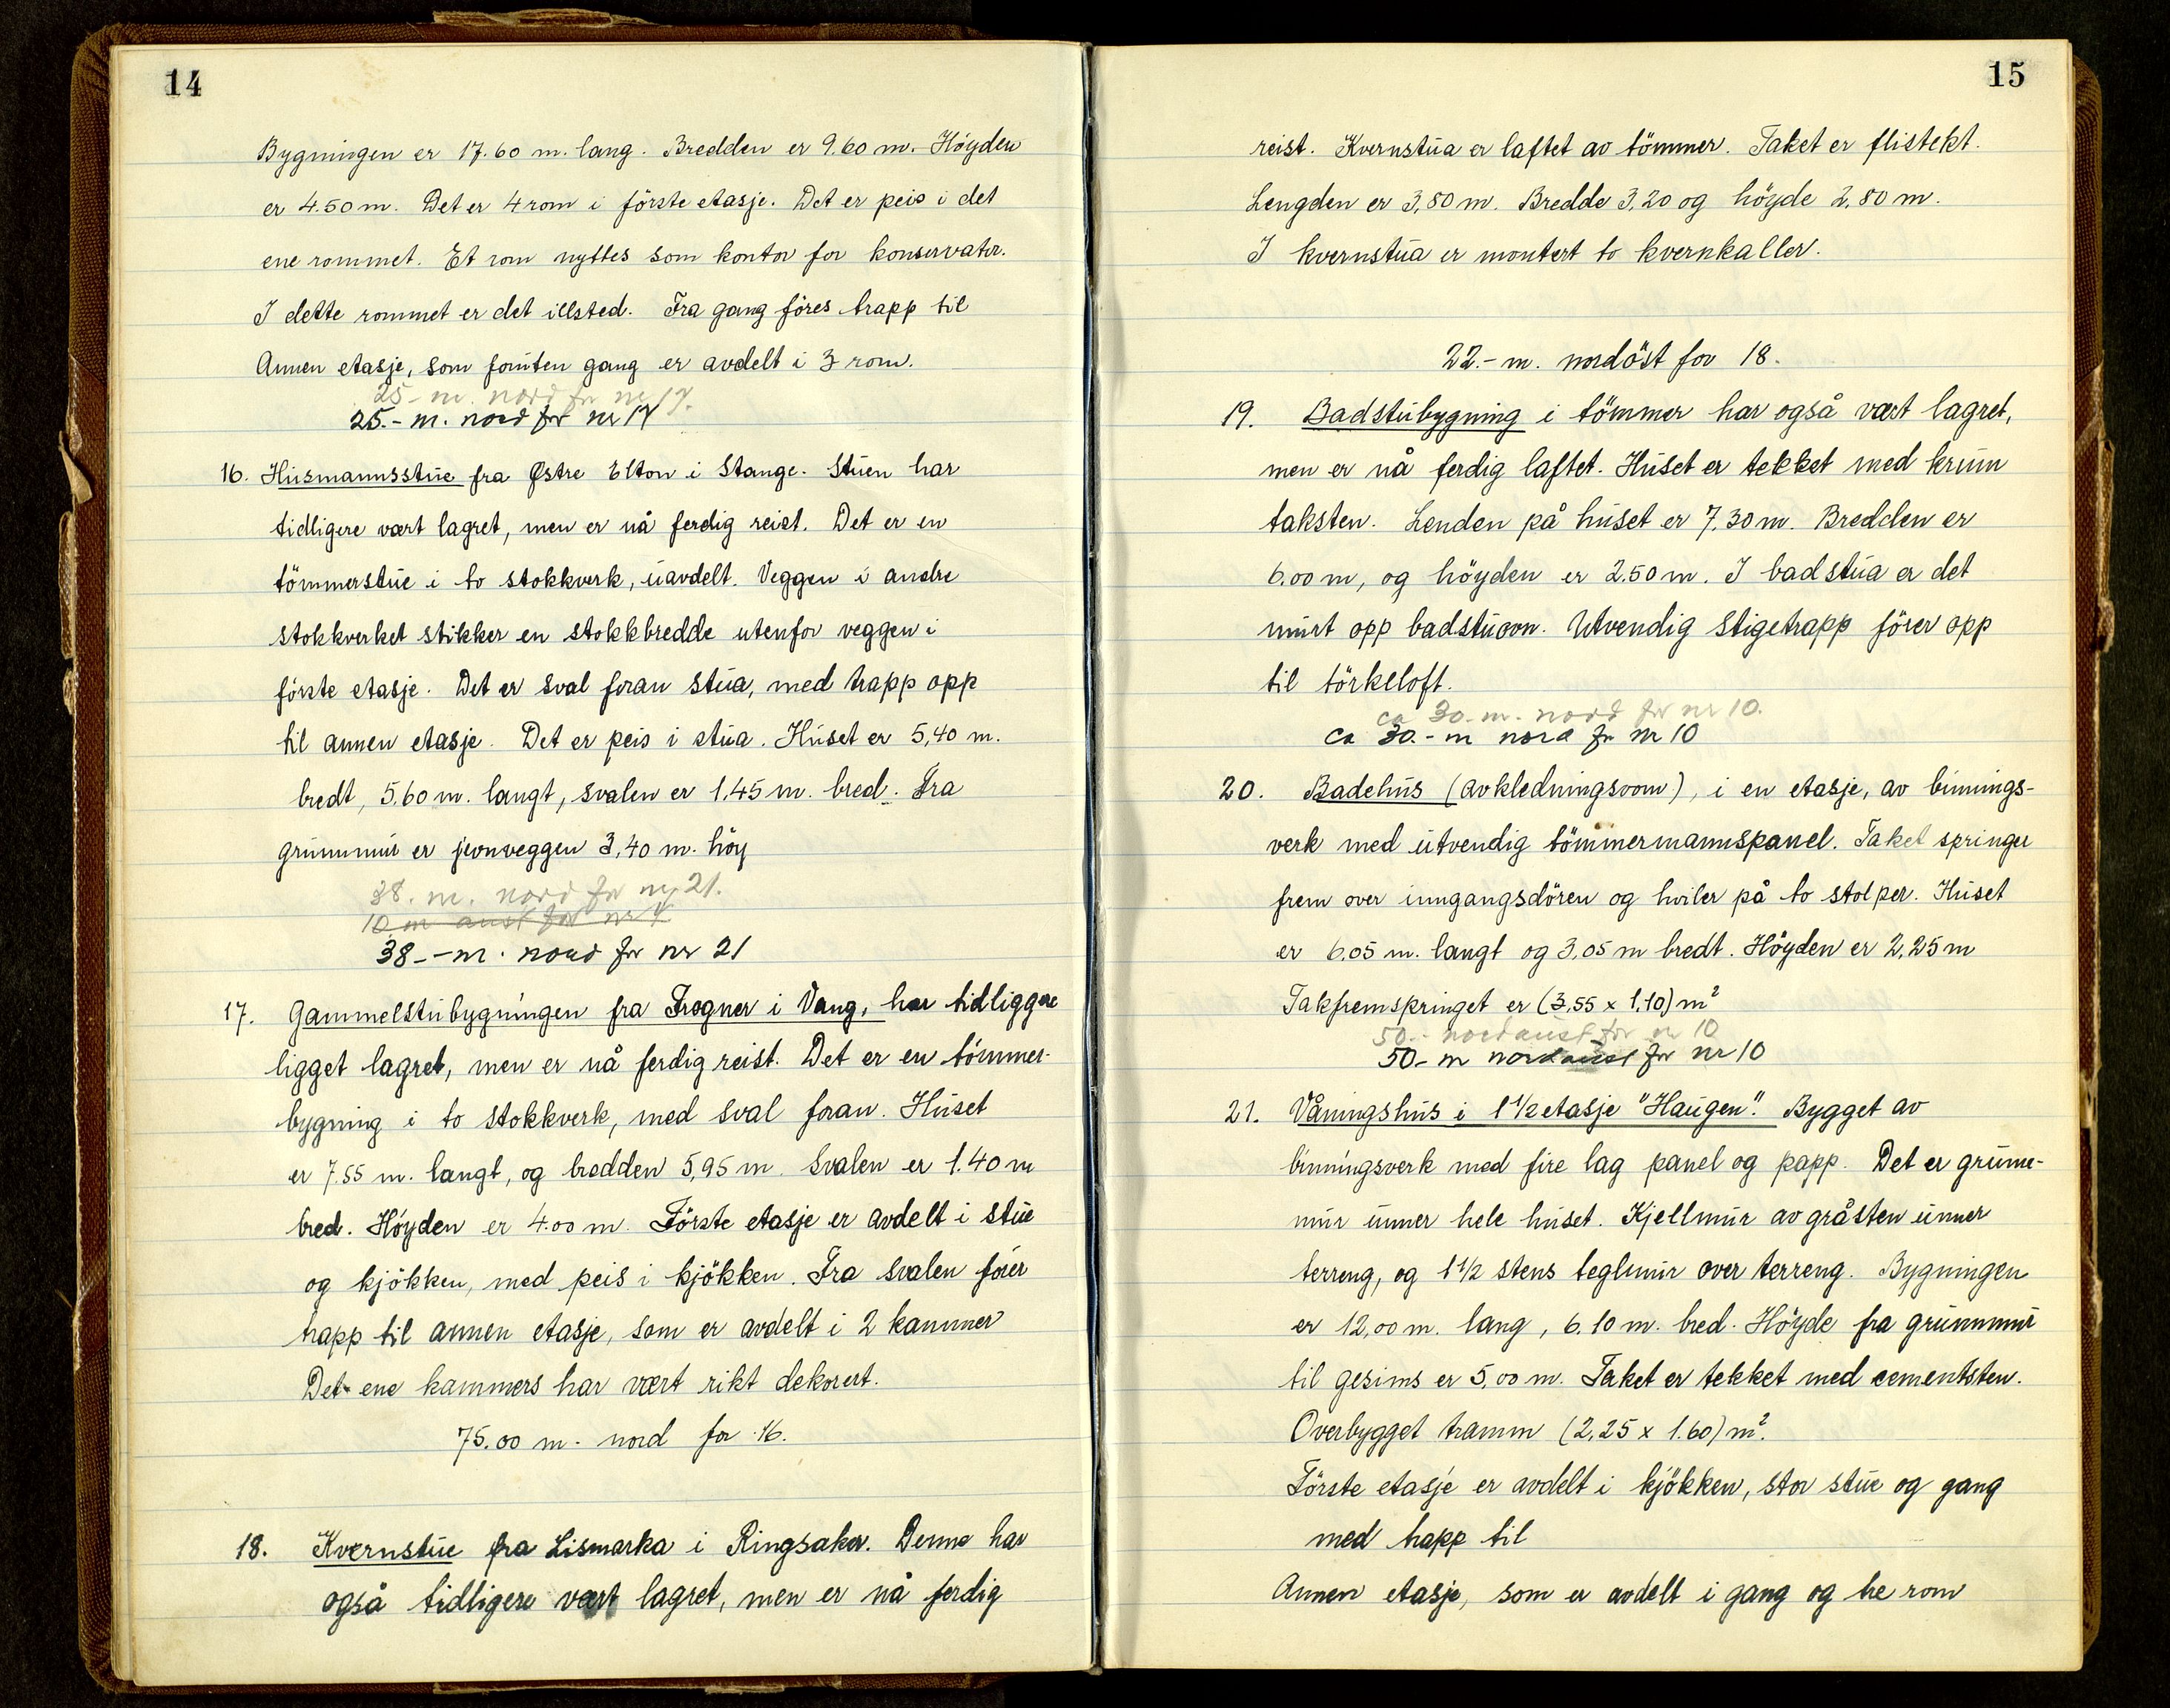 14
Bygningen er 17.60 m. lang. Bredden er 9.60 m. Höyden
er 4.50 m. Det er 4 rom i förste etasje. Det er peis i det
ene rommet. Et rom nyttes som kontor for konservator.
I dette rommet er det illsted. Fra gang föres trapp til
Annen etasje, som foruten gang er avdelt i 3 rom.
25 - m. nord for nr 17.
25.- m. nord for nr 17
16. Husmannsstue fra Østre Elton i Stange. Stuen har
tidligere vært lagret, men er nå ferdig reist. Det er en
tömmerstue i to stokkverk, uavdelt. Veggen i andre
stokkverket stikker en stokkbredde utenfor veggen i
förste etasje. Det er sval foran stua, med trapp opp
til annen etasje. Det er peis i stua. Huset er 5,40 m.
bredt, 5.60 m. langt, svalen er 1.45 m. bred. Fra
grunnmur er jevnveggen 3,40 m. höy
38. m. nord for nr 21.
10 m aust for nr 4
38 - m. nord for nr 21
17. Gammelstubygningen fra Frogner i Vang, har tidliggere
ligget lagret, men er nå ferdig reist. Det er en tömmer-
bygning i to stokkverk, med sval foran. Huset
er 7.55 m. langt, og bredden 5,95 m. Svalen er 1.40 m
bred. Höyden er 4.00 m. Förste etasje er avdelt i stue
og kjökken, med peis i kjökken. Fra svalen förer
trapp til annen etasje, som er avdelt i 2 kammer
Det ene kammers har vært rikt dekorert.
75.00 m. nord for 16.
18. Kvernstue fra Lismarka i Ringsaker. Denne har
også tidligere vært lagret, men er nå ferdig
15
reist. Kvernstua er laftet av tömmer. Taket er flistekt.
Lengden er 3,80 m. Bredde 3,20 og höyde 2,80 m.
I kvernstua er montert to kvernkaller.
22.- m. nordöst for 18.
19. Badstubygning i tömmer har også vært lagret,
men er nå ferdig laftet. Huset er tekket med krum
taksten. Lenden på huset er 7,30 m. Bredden er
6.00 m, og höyden er 2.50 m. I badstua er det
murt opp badstuovn. Utvendig stigetrapp förer opp
til törkeloft.
ca 30 - m. nord for nr 10.
ca 30.- m nord for nr 10
20. Badehus (avkledningsrom), i en etasje, av binnings-
verk med utvendig tömmermannspanel. Taket springer
frem over inngangsdören og hviler på to stolper. Huset
er 6,05 m. langt og 3,05 m bredt. Höyden er 2,25 m
Takfremspringet er (3,55 x 1,10) m²
50.- nordaust for nr 10
50 - m nordaust for nr 10
21. Våningshus i 1 1/2 etasje "Haugen". Bygget av
binningsverk med fire lag panel og papp. Det er grunne-
mur unner hele huset. Kjellmur av gråsten unner
terreng, og 1 1/2 stens teglmur over terreng. Bygningen
er 12,00 m. lang, 6.10 m. bred. Höyde fra grunnmur
til gesims er 5,00 m. Taket er tekket med cementsten.
Overbygget tramm (2,25 x 1.60) m².
Förste etasje er avdelt i kjökken, stor stue og gang
med trapp til
Annen etasje, som er avdelt i gang og tre rom